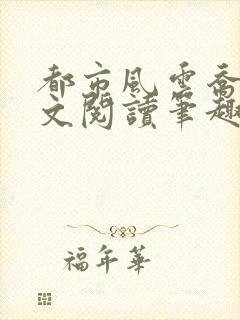 都市風雲喬
文閱讀筆趣
福年華